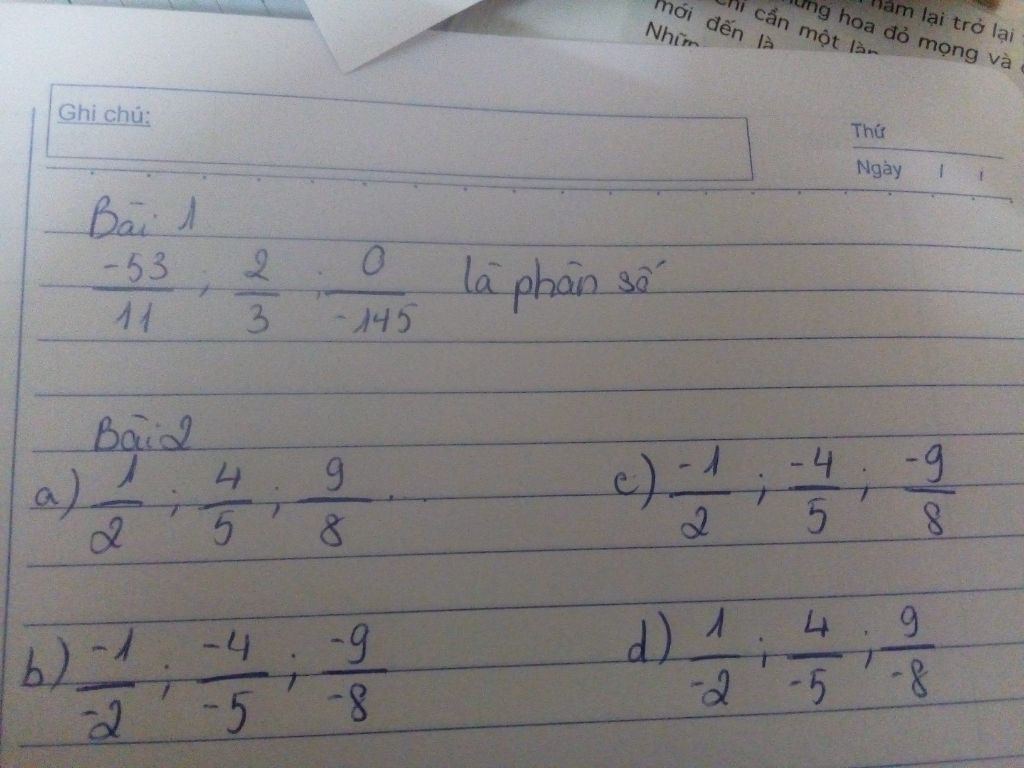 năm lại trở lại
những hoa đỏ mọng và
chỉ cần một làn
mới đến là
Những
Ghi chú:
Thứ
Ngày / /
Bài 1
-53/11 ; 2/3 ; 0/-145 là phân số
Bài 2
a) 1/2 ; 4/5 ; 9/8 ...
c) -1/2 ; -4/5 ; -9/8
b) -1/-2 ; -4/-5 ; -9/-8
d) 1/-2 ; 4/-5 ; 9/-8